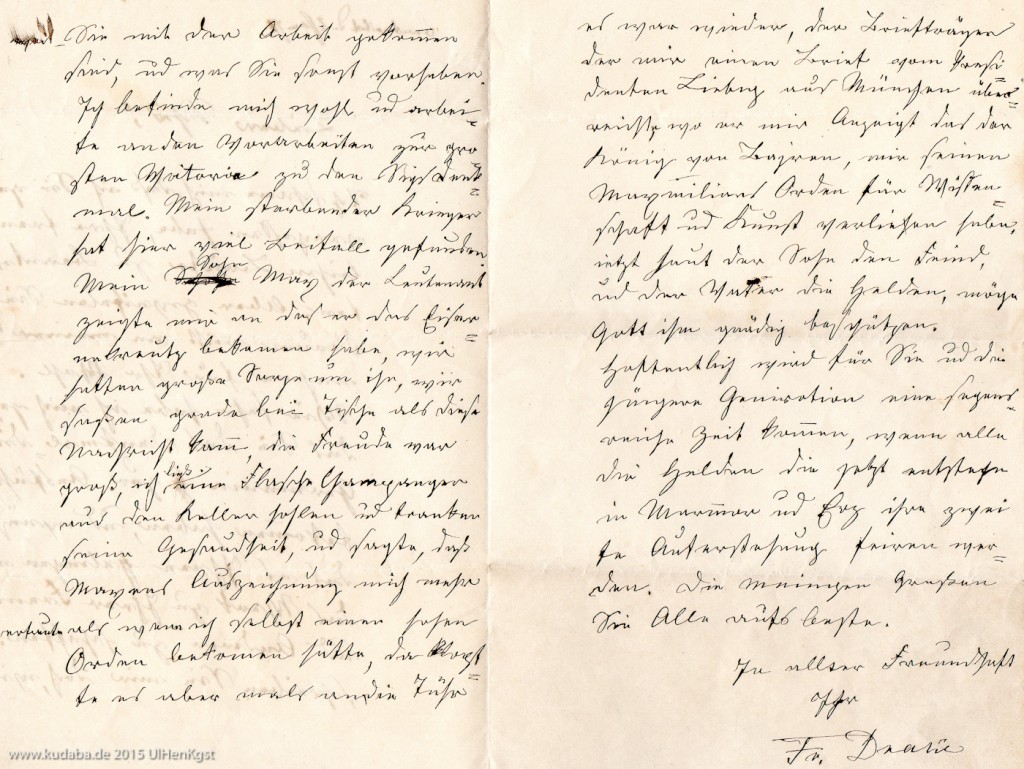 Sie mit der Arbeit gekommen
sind, ud was Sie sonst vorhaben.
Ich befinde mich wohl ud arbei=
te an den Vorarbeiten zur grö
sten Victoria zu den Sigsdenk=
mal. Mein sterbender Krieger
hat hier viel Beifall gefunden.
Mein Sohn Max der Leutenant
zeigte mir an das er das Eiser=
nekreutz bekomen habe, wir
hatten große Sorge um ihn, wir
saßen grade bei Tische als diese
Nachricht kamm, die Freude war
groß, ich ließ eine Flasche Champanger
aus den Keller hohlen ud tranken
seine Gesundheit, ud sagte, daß
Maxens Auszeichnung mich mehr
erfreute als wenn ich selbst einen hohen
Orden bekomen hätte, da klopf=
te es aber mals an die Tühr
es war wieder, der Briefträger
der mir einen Brief vom Presi
denten Liebig aus München über=
reichte, wo er mir Anzeigt das der
König von Bairen, mir seinen
Maxmilians Orden für Wissen=
schaft ud Kunst verliehen habe,
jetzt haut der Sohn den Feind,
ud der Vater die Helden, möge
Gott ihn gnädig beschützen.
Hoffentlich wird für Sie ud die
jüngere Generation eine segens=
reiche Zeit kommen, wenn alle
die Helden die jetzt entstehn
in Marmor ud Erz ihre zwei
te Auferstehung feiren wer=
den. Die meinigen Grüßen
Sie Alle aufs beste.
In allter Freundschaft
Ihr
Fr. Drake
www.kudaba.de 2015 UlHenKgst